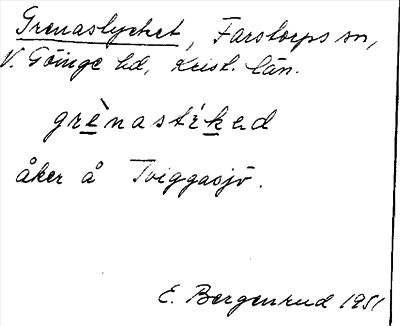 Grenastycket, Farstorps sn,
V. Göinge hd, Krist. län.
grènastýkəd
åker å Tviggasjö.
E. Bergenrud 1951